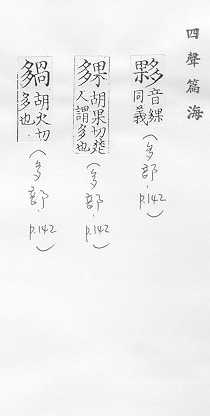 四聲篇海
音 同義 (多部, p.142)
㚌 胡果切楚人謂多也 (多部, p.142)
胡火切多也 (多部, p.142)